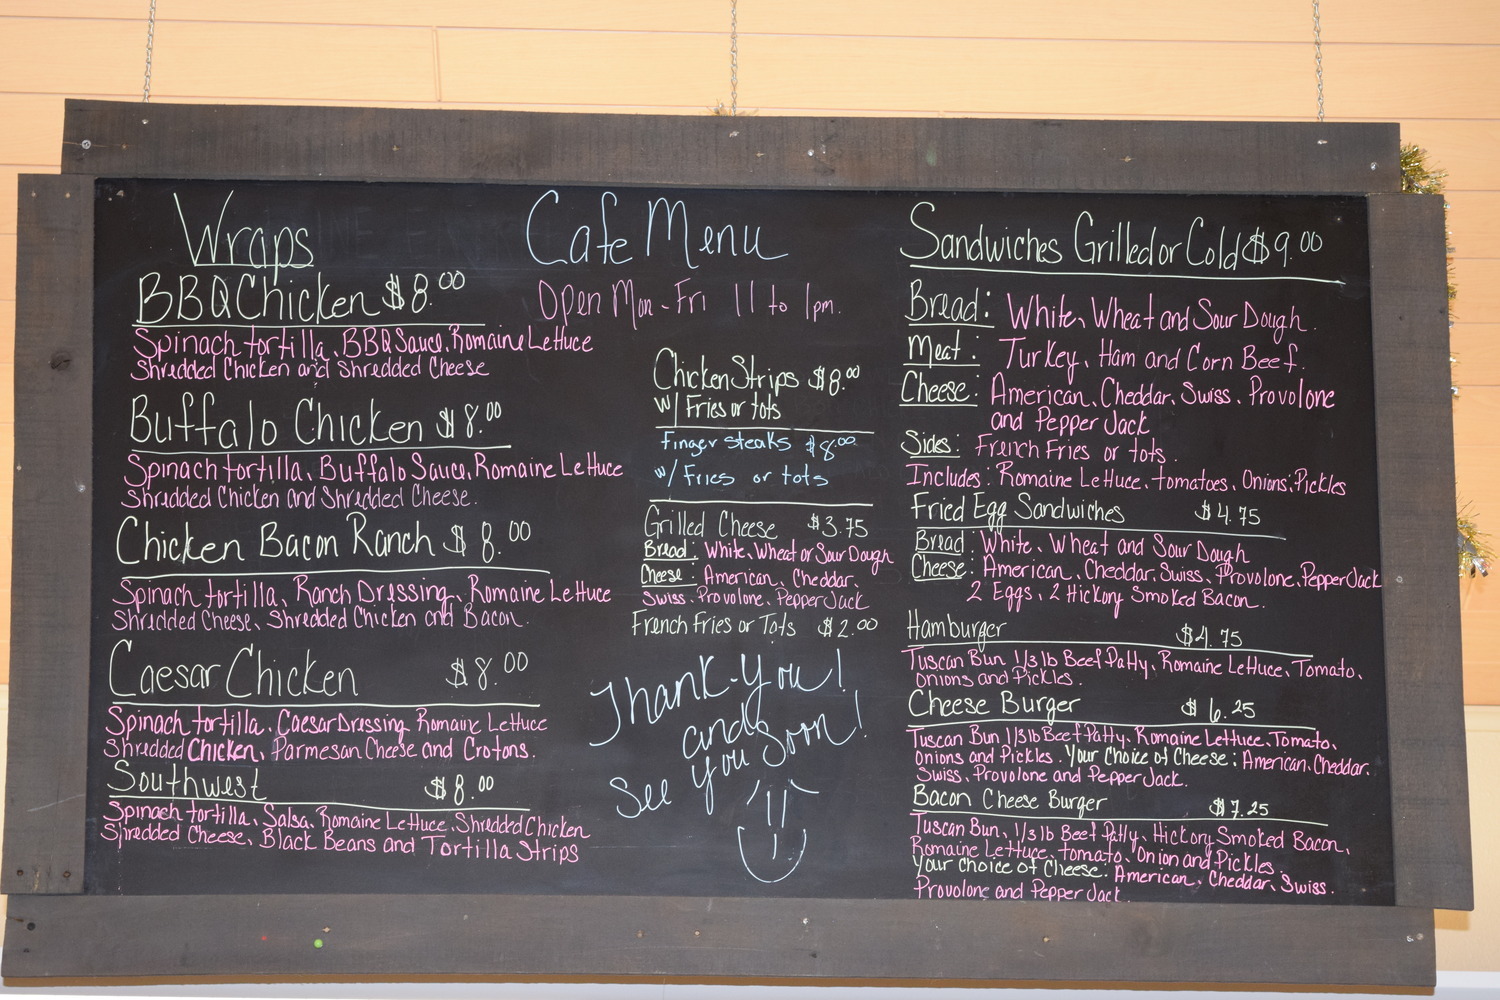 Wraps
BBQ Chicken $8.00
Spinach tortilla, BBQ Sauce, Romaine Lettuce
Shredded Chicken and Shredded Cheese
Buffalo Chicken $8.00
Spinach tortilla, Buffalo Sauce, Romaine Lettuce
Shredded Chicken and Shredded Cheese.
Chicken Bacon Ranch $8.00
Spinach tortilla, Ranch Dressing, Romaine Lettuce
Shredded Cheese, Shredded Chicken and Bacon.
Caesar Chicken $8.00
Spinach tortilla, Caesar Dressing, Romaine Lettuce
Shredded Chicken, Parmesan Cheese and Crotons.
Southwest $8.00
Spinach tortilla, Salsa, Romaine Lettuce, Shredded Chicken
Shredded Cheese, Black Beans and Tortilla Strips
Cafe Menu
Open Mon-Fri 11 to 1pm.
Chicken Strips $8.00
w/ Fries or tots
Finger Steaks $8.00
w/ Fries or tots
Grilled Cheese $3.75
Bread: White, Wheat or Sour Dough
Cheese: American, Cheddar,
Swiss, Provolone, Pepper Jack
French Fries or Tots $2.00
Thank-You!
and
See you Soon!
Sandwiches Grilled or Cold $9.00
Bread: White, Wheat and Sour Dough.
Meat: Turkey, Ham and Corn Beef.
Cheese: American, Cheddar, Swiss, Provolone
and Pepper Jack
Sides: French Fries or tots.
Includes: Romaine Lettuce, tomatoes, Onions, Pickles
Fried Egg Sandwiches $4.75
Bread: White, Wheat and Sour Dough
Cheese: American, Cheddar, Swiss, Provolone, Pepper Jack
2 Eggs, 2 Hickory Smoked Bacon.
Hamburger $4.75
Tuscan Bun, 1/3 lb Beef Patty, Romaine Lettuce, Tomato,
Onions and Pickles.
Cheese Burger $6.25
Tuscan Bun 1/3 lb Beef Patty, Romaine Lettuce, Tomato,
Onions and Pickles. Your Choice of Cheese: American, Cheddar,
Swiss, Provolone and Pepper Jack.
Bacon Cheese Burger $7.25
Tuscan Bun, 1/3 lb Beef Patty, Hickory Smoked Bacon,
Romaine Lettuce, tomato, Onion and Pickles.
Your Choice of Cheese: American, Cheddar, Swiss.
Provolone and Pepper Jack.